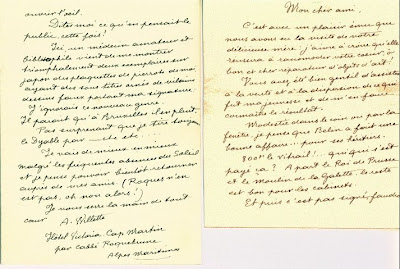 Mon cher ami,
C'est avec un plaisir ému que
nous avons eu la visite de votre
délicieuse mère. J'aime à croire qu'elle
réussira à raccommoder votre cœur, ô
bon et cher réparateur d'objets d'art!
Vous avez été bien gentil d'assister
à la vente et à la dispersion de ce qui
fut ma jeunesse et de m'en faire
connaître le résultat.
Modestie dans le coin ou par la
fenêtre, je pense que Belon a fait une
bonne affaire... pour ses héritiers.
800f le vitrail! qui que s'est
payé ça? A part le Roi de Prusse
et le moulin de la Galette, le reste
est bon pour les cabinets.
Et puis c'est pas signé, faudra
ouvrir l'œil.
Dites moi ce qu'en pensait le
public cette fois!
Ici un médecin amateur et
bibliophile vient de me montrer
triomphalement deux exemplaires sur
japon des plaquettes de pierrots de moi
ayant des sous titres ornés de vilains
dessins faux portant ma signature
J'ignorais ce nouveau genre.
Il paraît qu'à Bruxelles c'en pleut.
Pas surprenant que je tire
le Diable par
Je vais de mieux en mieux
malgré les fréquentes absences du Soleil
et je pense pouvoir bientôt retourner
auprès de mes amis (Roques n'en
est pas, oh non alors!)
Je vous serre la main de tout
cœur A. Willette
Hôtel Victoria Cap Martin
par Cabbé Roquebrune
Alpes Maritimes